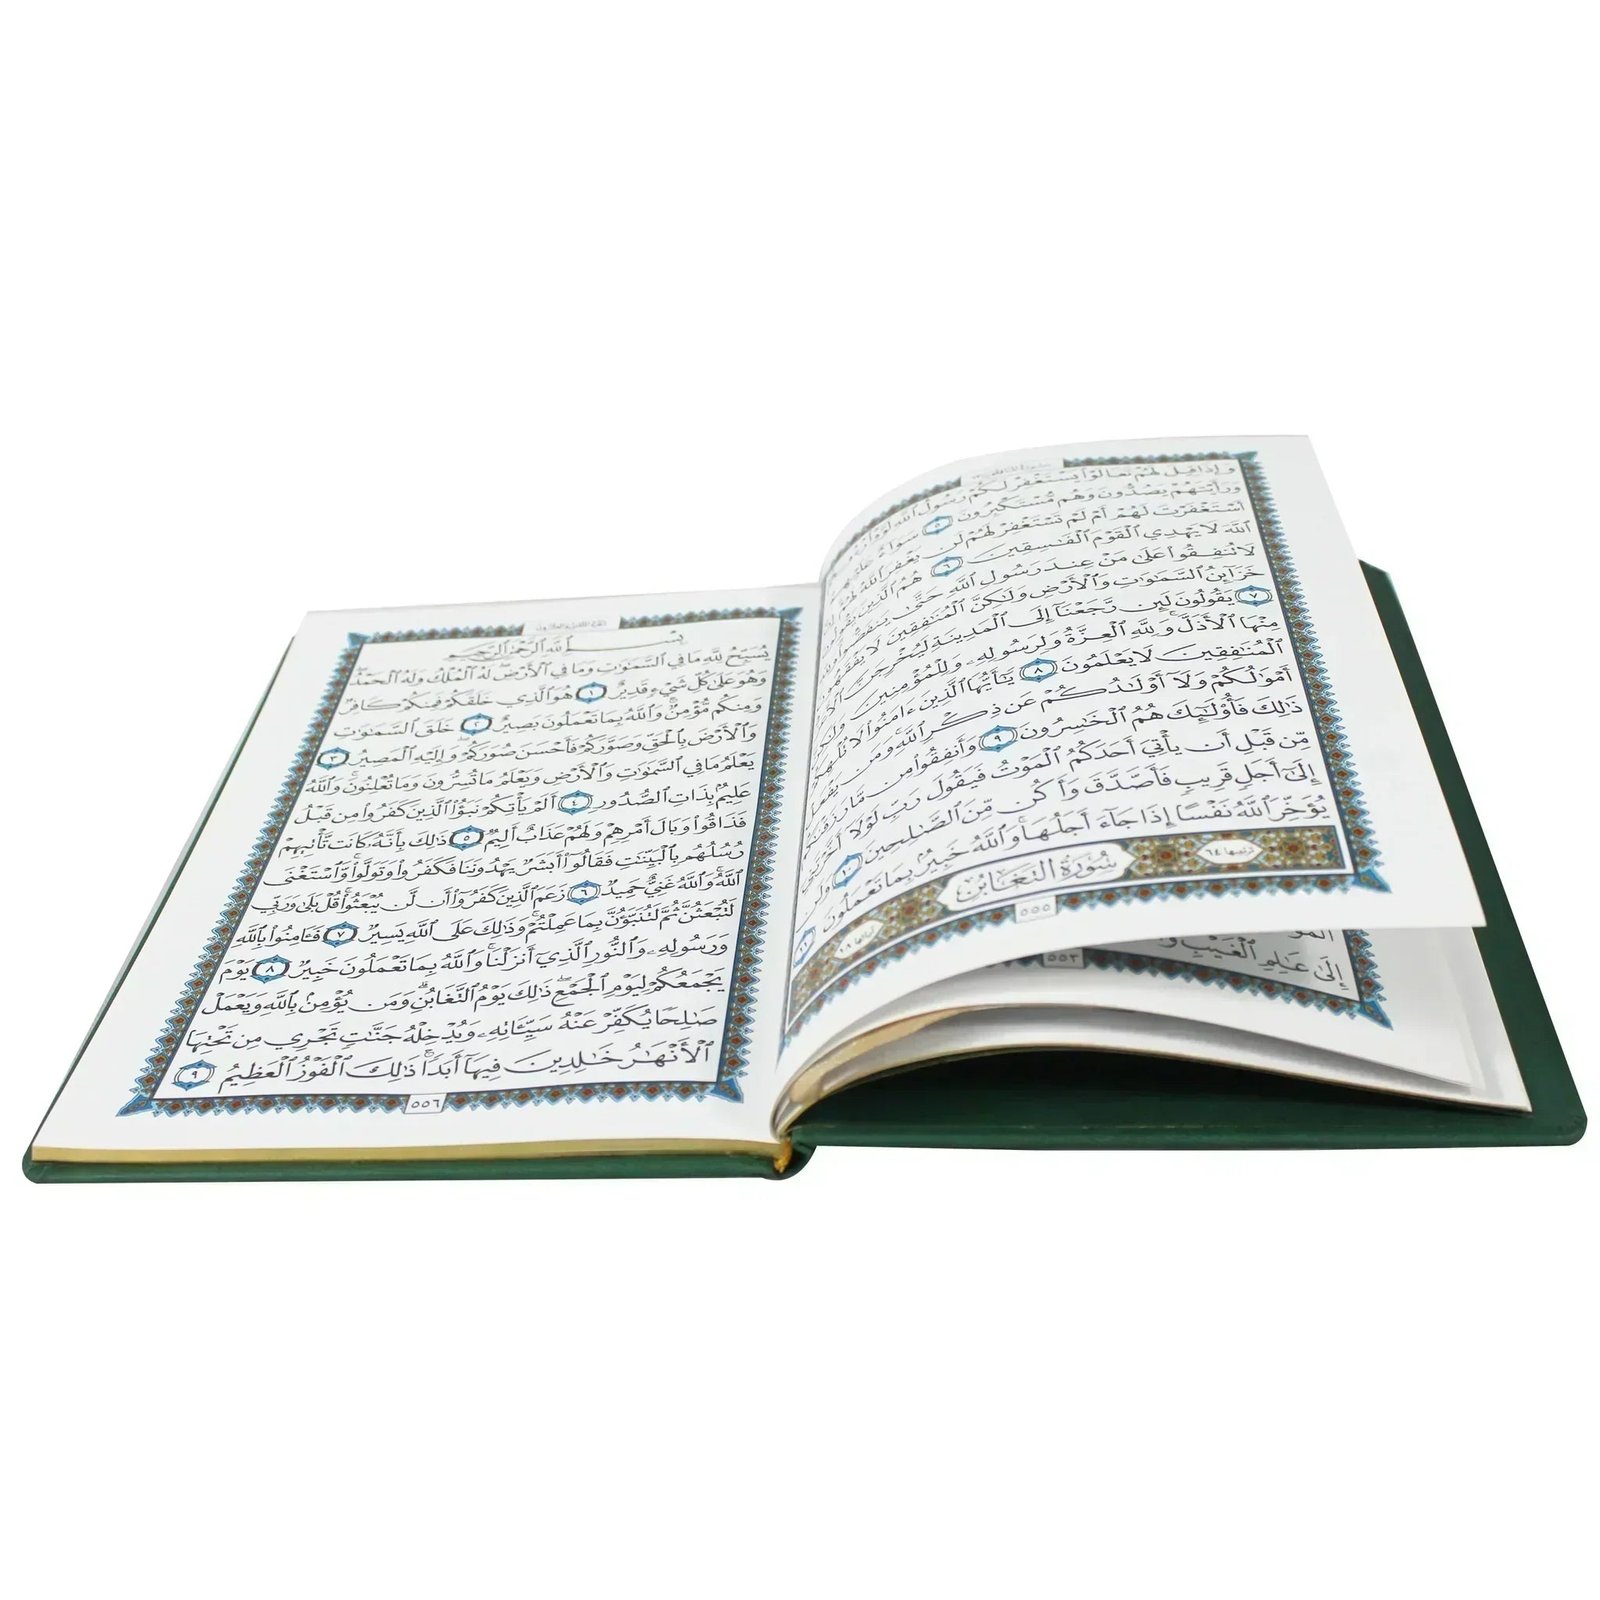 وَإِذَا قِيلَ لَهُمْ تَعَالَوْا۟ يَسْتَغْفِرْ لَكُمْ رَسُولُ ٱللَّهِ لَوَّوْا۟
وَرَأَيْتَهُمْ يَصُدُّونَ وَهُم مُّسْتَكْبِرُونَ ٥ سَوَآءٌ عَلَيْهِمْ
أَسْتَغْفَرْتَ لَهُمْ أَمْ لَمْ تَسْتَغْفِرْ لَهُمْ لَن يَغْفِرَ ٱللَّهُ لَهُمْ
ٱللَّهَ لَا يَهْدِي ٱلْقَوْمَ ٱلْفَٰسِقِينَ ٦ هُمُ ٱلَّذِينَ يَقُولُونَ
لَا تُنفِقُوا۟ عَلَىٰ مَنْ عِندَ رَسُولِ ٱللَّهِ حَتَّىٰ يَنفَضُّوا۟
خَزَآئِنُ ٱلسَّمَٰوَٰتِ وَٱلْأَرْضِ وَلَٰكِنَّ ٱلْمُنَٰفِقِينَ لَا يَفْقَهُونَ
٧ يَقُولُونَ لَئِن رَّجَعْنَآ إِلَى ٱلْمَدِينَةِ لَيُخْرِجَنَّ
مِنْهَا ٱلْأَذَلَّ وَلِلَّهِ ٱلْعِزَّةُ وَلِرَسُولِهِۦ وَلِلْمُؤْمِنِينَ وَلَٰكِنَّ
ٱلْمُنَٰفِقِينَ لَا يَعْلَمُونَ ٨ يَٰٓأَيُّهَا ٱلَّذِينَ ءَامَنُوا۟ لَا تُلْهِكُمْ
أَمْوَٰلُكُمْ وَلَآ أَوْلَٰدُكُمْ عَن ذِكْرِ ٱللَّهِ وَمَن يَفْعَلْ
ذَٰلِكَ فَأُو۟لَٰٓئِكَ هُمُ ٱلْخَٰسِرُونَ ٩ وَأَنفِقُوا۟ مِن مَّا رَزَقْنَٰكُم
مِّن قَبْلِ أَن يَأْتِيَ أَحَدَكُمُ ٱلْمَوْتُ فَيَقُولَ رَبِّ لَوْلَآ أَخَّرْتَنِيٓ
إِلَىٰٓ أَجَلٍ قَرِيبٍ فَأَصَّدَّقَ وَأَكُن مِّنَ ٱلصَّٰلِحِينَ ١٠ وَلَن
يُؤَخِّرَ ٱللَّهُ نَفْسًا إِذَا جَآءَ أَجَلُهَا وَٱللَّهُ خَبِيرٌۢ بِمَا تَعْمَلُونَ ١١
ترتيبها ٦٤ سُورَةُ التَّغَابُنِ آياتها ١٨
٥٥٥
إِلَىٰ عَٰلِمِ ٱلْغَيْبِ وَ
٥٥٣
بِسْمِ ٱللَّهِ ٱلرَّحْمَٰنِ ٱلرَّحِيمِ
يُسَبِّحُ لِلَّهِ مَا فِي ٱلسَّمَٰوَٰتِ وَمَا فِي ٱلْأَرْضِ لَهُ ٱلْمُلْكُ وَلَهُ ٱلْحَمْدُ
وَهُوَ عَلَىٰ كُلِّ شَيْءٍ قَدِيرٌ ١ هُوَ ٱلَّذِي خَلَقَكُمْ فَمِنكُمْ كَافِرٌ
وَمِنكُم مُّؤْمِنٌ وَٱللَّهُ بِمَا تَعْمَلُونَ بَصِيرٌ ٢ خَلَقَ ٱلسَّمَٰوَٰتِ
وَٱلْأَرْضَ بِٱلْحَقِّ وَصَوَّرَكُمْ فَأَحْسَنَ صُوَرَكُمْ وَإِلَيْهِ ٱلْمَصِيرُ ٣
يَعْلَمُ مَا فِي ٱلسَّمَٰوَٰتِ وَٱلْأَرْضِ وَيَعْلَمُ مَا تُسِرُّونَ وَمَا تُعْلِنُونَ وَٱللَّهُ
عَلِيمٌۢ بِذَاتِ ٱلصُّدُورِ ٤ أَلَمْ يَأْتِكُمْ نَبَؤُا۟ ٱلَّذِينَ كَفَرُوا۟ مِن قَبْلُ
فَذَاقُوا۟ وَبَالَ أَمْرِهِمْ وَلَهُمْ عَذَابٌ أَلِيمٌ ٥ ذَٰلِكَ بِأَنَّهُۥ كَانَت تَّأْتِيهِمْ
رُسُلُهُم بِٱلْبَيِّنَٰتِ فَقَالُوٓا۟ أَبَشَرٌ يَهْدُونَنَا فَكَفَرُوا۟ وَتَوَلَّوا۟ وَّٱسْتَغْنَى
ٱللَّهُ وَٱللَّهُ غَنِيٌّ حَمِيدٌ ٦ زَعَمَ ٱلَّذِينَ كَفَرُوٓا۟ أَن لَّن يُبْعَثُوا۟ قُلْ بَلَىٰ وَرَبِّي
لَتُبْعَثُنَّ ثُمَّ لَتُنَبَّؤُنَّ بِمَا عَمِلْتُمْ وَذَٰلِكَ عَلَى ٱللَّهِ يَسِيرٌ ٧ فَـَٔامِنُوا۟ بِٱللَّهِ
وَرَسُولِهِۦ وَٱلنُّورِ ٱلَّذِيٓ أَنزَلْنَا وَٱللَّهُ بِمَا تَعْمَلُونَ خَبِيرٌ ٨ يَوْمَ
يَجْمَعُكُمْ لِيَوْمِ ٱلْجَمْعِ ذَٰلِكَ يَوْمُ ٱلتَّغَابُنِ وَمَن يُؤْمِنۢ بِٱللَّهِ وَيَعْمَلْ
صَٰلِحًا يُكَفِّرْ عَنْهُ سَيِّـَٔاتِهِۦ وَيُدْخِلْهُ جَنَّٰتٍ تَجْرِي مِن تَحْتِهَا
ٱلْأَنْهَٰرُ خَٰلِدِينَ فِيهَآ أَبَدًا ذَٰلِكَ ٱلْفَوْزُ ٱلْعَظِيمُ ٩
٥٥٦